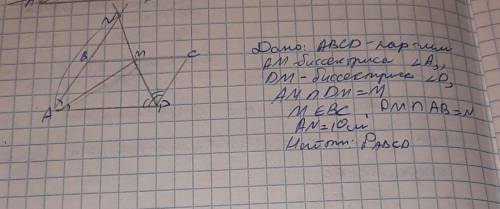 N
B
M
C
A
D
Дано: ABCD - пар-мм
AM - биссектриса ∠A,
DM - биссектриса ∠D,
AM ∩ DM = M
M ∈ BC, DM ∩ AB = N
AN = 10 см
Найти: P ABCD